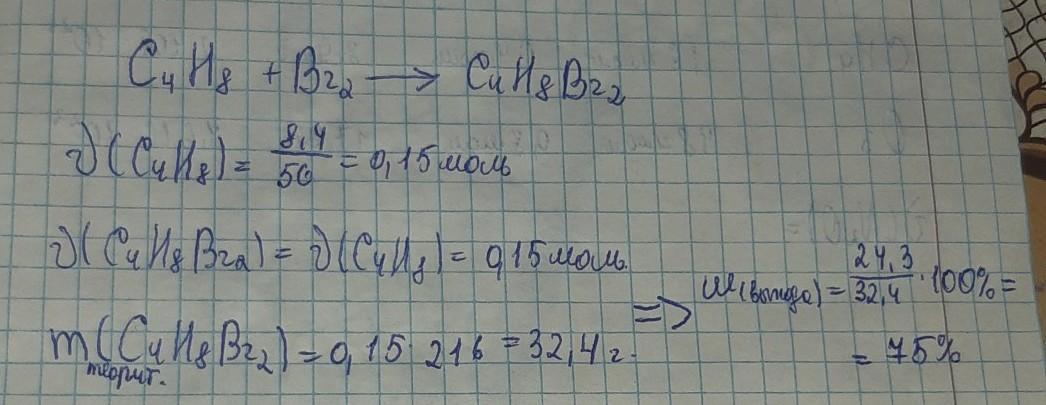 C₄H₈ + Br₂ → C₄H₈Br₂
ν(C₄H₈) = 8,4/56 = 0,15 моль
ν(C₄H₈Br₂) = ν(C₄H₈) = 0,15 моль.
m(C₄H₈Br₂) = 0,15 · 216 = 32,4 г.
теорит.
=> ω(выхода) = 24,3/32,4 · 100% =
= 75%